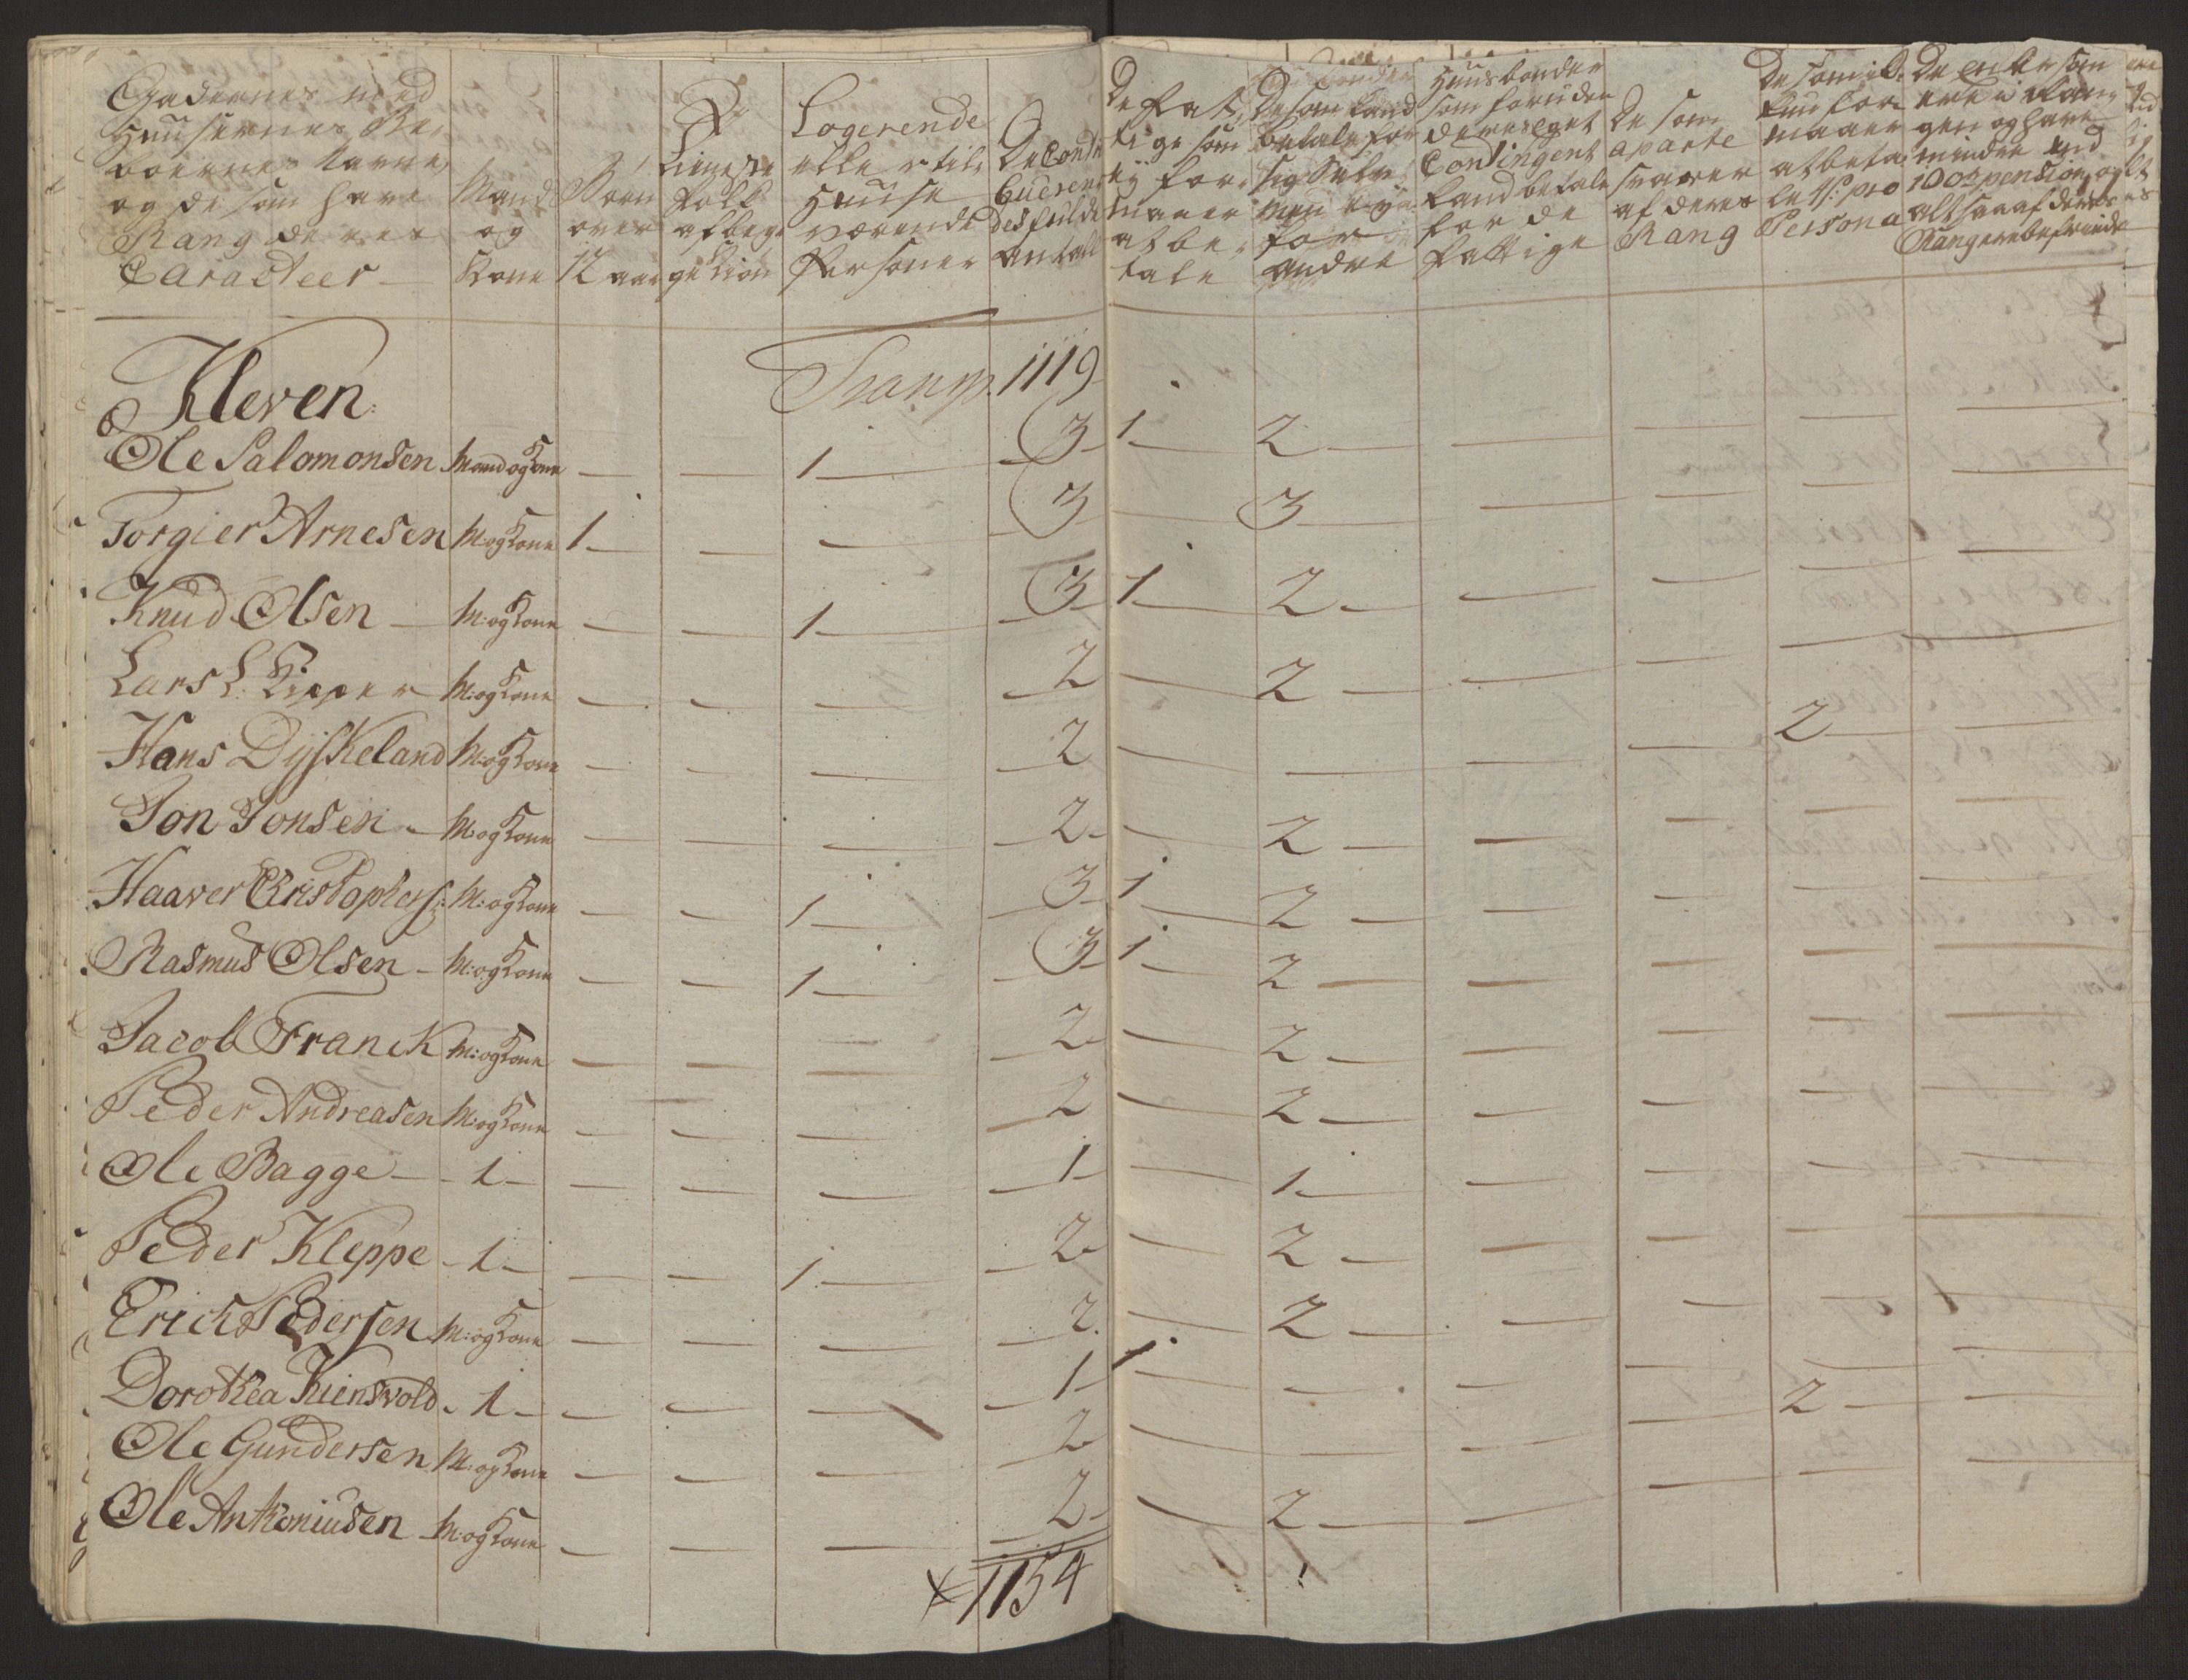 Gadernes med
Huusernes Be-
boernes Navne,
og de som have
Rang deres
Caracteer
Mand
og
Kone
Børn
over
12 aar
Tieneste
Folk
af beg.
ge Kiøn
Logerende
eller til
Huuse
værende
Personer
De Contri
buerendes
fulde
antall
De Fat-
tige som
ey for-
maaer
at be-
tale
De som kand
betale for
sig Selv
men ey
for
andre
Huusbonder
som foruden
deres eget
Contingent
kand betale
for de
fattige
De som
aparte
svarer
af deres
Rang
De som ik-
kun for-
maaer
at beta-
le 4 s: pro
Persona
De Enker som
ere i Ran-
gen og have
mindre end
100 rd pension, og
altsaa af deres
Rang ere befriede
Kleven
Transp. 1119
Ole Salomonsen Mand og Kone — — 1 3 1 2 — — — —
Torgier Arnesen M: og Kone 1 — — 3 — 3 — — — —
Knud Olsen — M: og Kone — — 1 3 1 2 — — — —
Lars L. Kipper M: og Kone — — — 2 — 2 — — — —
Hans Dyskeland M: og Kone — — — 2 — — — — 2 —
Jon Jonsen — M: og Kone — — — 2 — 2 — — — —
Haaver Christophers: M: og Kone — — 1 3 1 2 — — — —
Rasmus Olsen — M: og Kone — — 1 3 1 2 — — — —
Jacob Franck M: og Kone — — — 2 — 2 — — — —
Peder Andreasen M: og Kone — — — 2 — 2 — — — —
Ole Bagge — 1 — — — 1 — 1 — — — —
Peder Kleppe — 1 — — 1 2 — 2 — — — —
Erich Pedersen M: og Kone — — — 2 — 2 — — — —
Dorothea Kiensvold 1 — — — 1 1 — — — — —
Ole Gundersen M: og Kone — — — 2 — — — — 2 —
Ole Anthoniusen M: og Kone — — — 2 — 2 — — — —
1154